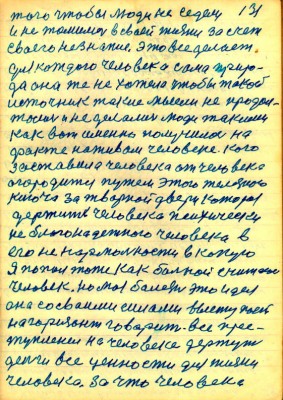 131
того чтобы люди не седели
и не томились в своей жизни за счет
своего незнание. Это все делает
для каждого человека сама приро-
да она же не хотела чтобы такой
источник такие мысли не продол-
жились и не делались люди такими
как вот именно получилось на
факте на живом человеке. кого
заставила человека от человека
огородится путем этого железного
ключа за творной двери которая
держит человека психически
не благонадежного человека в
его не нармолности в какую
Я попал тоже как болной считаюсь
человек. но моя балезн это идея
она со своими силами выступает
на горизонт говорит: все прес-
тупления на человеке держут
денги все ценности для жизни
человека. за что человека